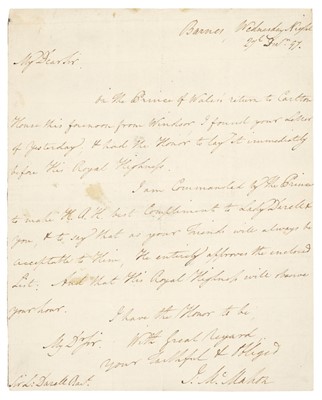 Barnes, Wednesday Night
27th Decr. 97.
My Dear Sir,
On the Prince of Wales's return to Carlton
House this forenoon from Windsor I found your Letter
of Yesterday, & had the Honor to lay it immediately
before His Royal Highness.
I am Commanded by the Prince
to make H.R.H. best Compliments to Lady Darell &
you, & to say that as your Friends will always be
acceptable to Him, He entirely approves the enclosed
List; And that His Royal Highness will observe
your hour.
I have the Honor to be
My Dr. Sir, With Great Regard
Your Faithful & Obliged
J. McMahon
Sir L: Darell Bart.